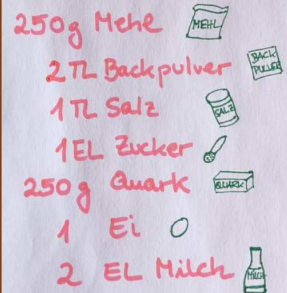 250g Mehl MEHL
2 TL Backpulver BACK PULVER
1 TL Salz SALZ
1 EL Zucker
250g Quark QUARK
1 Ei
2 EL Milch MILCH